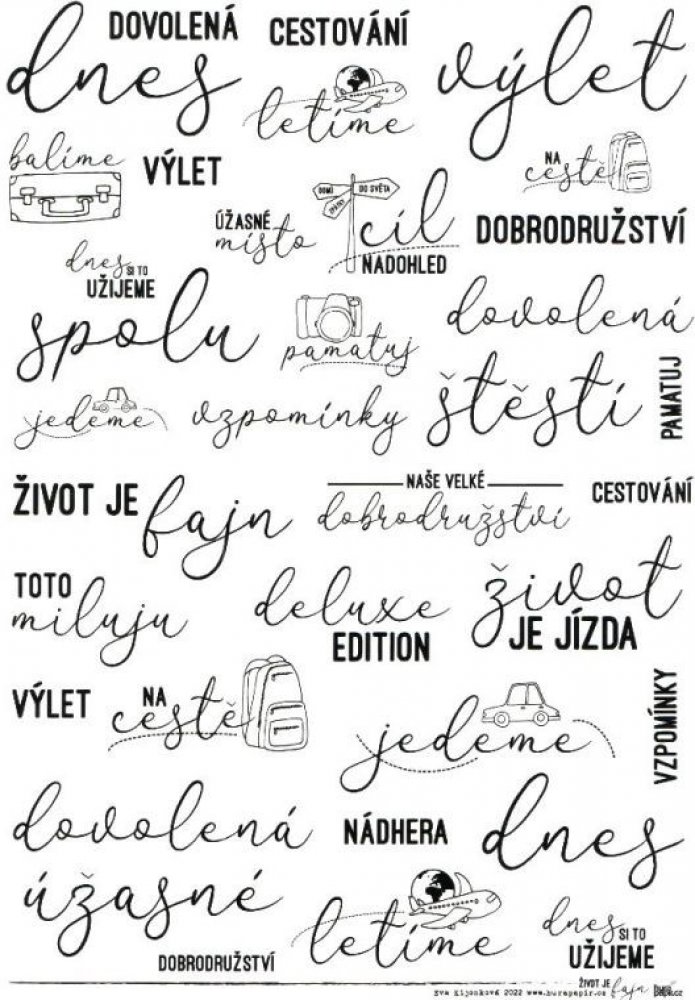 DOVOLENÁ
CESTOVÁNÍ
dnes
letíme
výlet
balíme
VÝLET
NA
cestě
DOMŮ
DO SVĚTA
ÚŽASNÉ
místo
cíl
NADOHLED
DOBRODRUŽSTVÍ
dnes
SI TO
UŽIJEME
spolu
pamatuj
dovolená
jedeme
vzpomínky
štěstí
PAMATUJ
ŽIVOT JE
fajn
NAŠE VELKÉ
dobrodružství
CESTOVÁNÍ
TOTO
miluju
deluxe
EDITION
život
JE JÍZDA
VÝLET
NA
cestě
jedeme
VZPOMÍNKY
dovolená
NÁDHERA
dnes
úžasné
letíme
DOBRODRUŽSTVÍ
dnes
SI TO
UŽIJEME
ŽIVOT JE
fajn
Eva Kijonková 2022 www.burapapir.cz